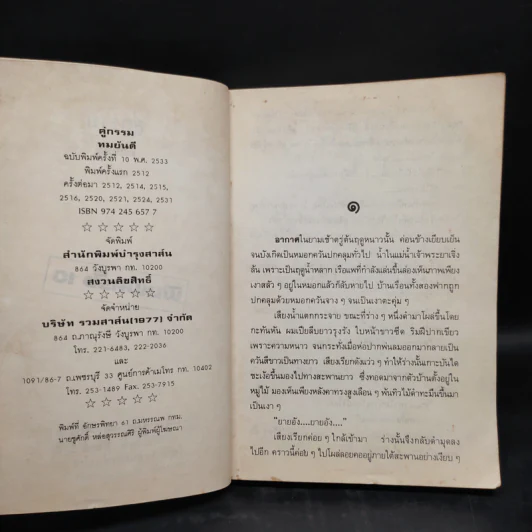 คู่กรรม
ทมยันตี
ฉบับพิมพ์ครั้งที่ 10 พ.ศ. 2533
พิมพ์ครั้งแรก 2512
ครั้งต่อมา 2512, 2514, 2515,
2516, 2520, 2521, 2524, 2531
ISBN 974 245 657 7
☆ ☆ ☆ ☆ ☆
จัดพิมพ์
สำนักพิมพ์บำรุงสาส์น
864 วังบูรพา กท. 10200
สงวนลิขสิทธิ์
☆ ☆ ☆ ☆ ☆
จัดจำหน่าย
บริษัท รวมสาส์น(1977) จำกัด
864 ถ.ภาณุรังษี วังบูรพา กท. 10200
โทร. 221-6483, 222-2036
และ
1091/86-7 ถ.เพชรบุรี 33 ศูนย์การค้าเมโทร กท. 10402
โทร. 253-1489 Fax. 253-7915
☆ ☆ ☆ ☆ ☆
พิมพ์ที่ อักษรพิทยา 61 ถ.มหรรณพ กทม.
นายชูศักดิ์ หล่อสุวรรณศิริ ผู้พิมพ์ผู้โฆษณา
๑
อากาศในยามเช้าตรู่ต้นฤดูหนาวนั้น ค่อนข้างเยียบเย็น
จนบังเกิดเป็นหมอกควันปกคลุมทั่วไป น้ำในแม่น้ำเจ้าพระยาเจิ่ง
ล้น เพราะเป็นฤดูน้ำหลาก เรือแพที่กำลังแล่นขึ้นล่องเห็นภาพเพียง
เงาสลัว ๆ อยู่ในหมอกแล้วก็ลับหายไป บ้านเรือนทั้งสองฟากถูก
ปกคลุมด้วยหมอกควันจาง ๆ จนเป็นเงาตะคุ่ม ๆ
เสียงน้ำแตกกระจาย ขณะที่ร่าง ๆ หนึ่งดำมาโผล่ขึ้นโดย
กะทันหัน ผมเปียสีบยาวรุงรัง ใบหน้าขาวซีด ริมฝีปากเขียว
เพราะความหนาว จนกระทั่งเมื่อห่อปากพ่นลมออกมากลายเป็น
ควันสีขาวเป็นทางยาว เสียงเรียกดังแว่ว ๆ ทำให้ร่างนั้นเกาะบันได
ชะเง้อขึ้นมองไปทางสะพานยาว ซึ่งทอดมาจากตัวบ้านตั้งอยู่ใน
หมู่ไม้ มองเห็นเพียงหลังคาทรงสูงเลือน ๆ พ้นทิวไม้ดำทะมึนขึ้นมา
เป็นเงา ๆ
"ยายอัง....ยายอัง...."
เสียงเรียกค่อย ๆ ใกล้เข้ามา ร่างนั้นจึงกลับดำมุดลง
ไปอีก คราวนี้ค่อย ๆ ไปโผล่ลอยคออยู่ภายใต้สะพานอย่างเงียบ ๆ